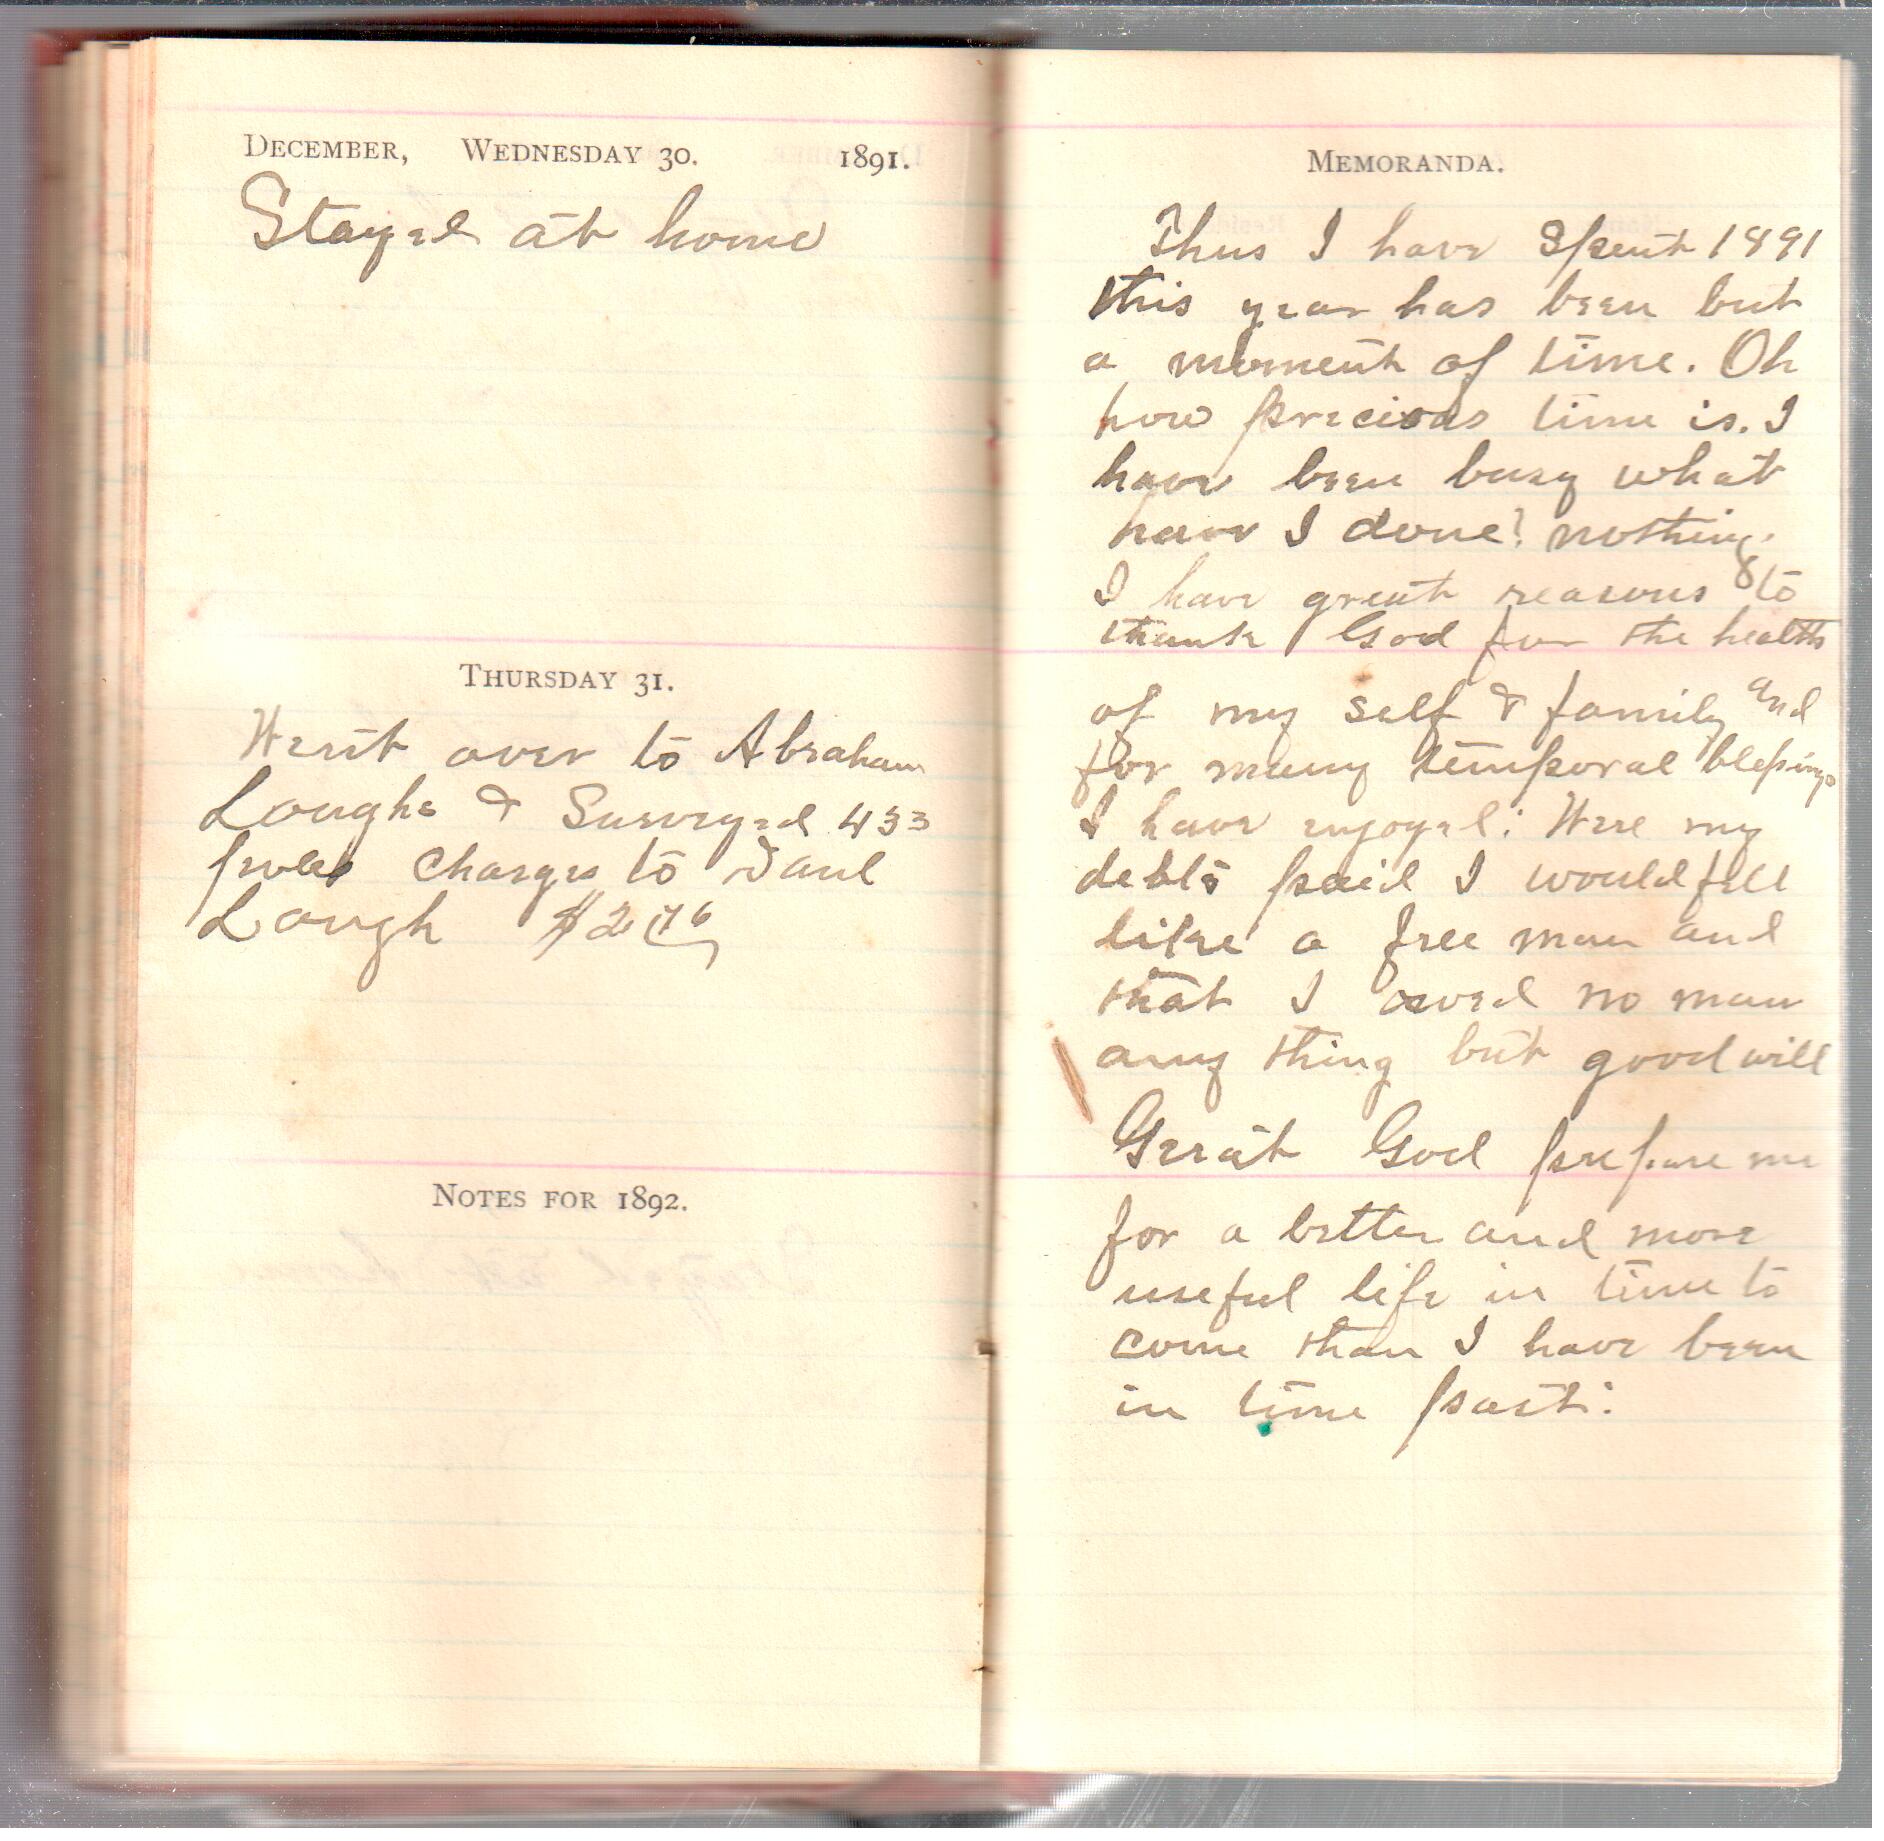 DECEMBER, WEDNESDAY 30. 1891.
Stayed at home
THURSDAY 31.
Went over to Abraham
Loughs & Surveyed 433
poles charges to
Lough $2
NOTES FOR 1892.
MEMORANDA.
Thus I have Spent 1891
this year has been but
a moment of time. Oh
how precious time is. I
have been busy what
have I done? nothing.
I have great reasons to
thank God for the health
of my self & family and
for many temporal blessings
I have enjoyed: Were my
debts paid I would feel
like a free man and
that I owed no man
any thing but good will
Great God prepare me
for a better and more
useful life in time to
come than I have been
in time past: